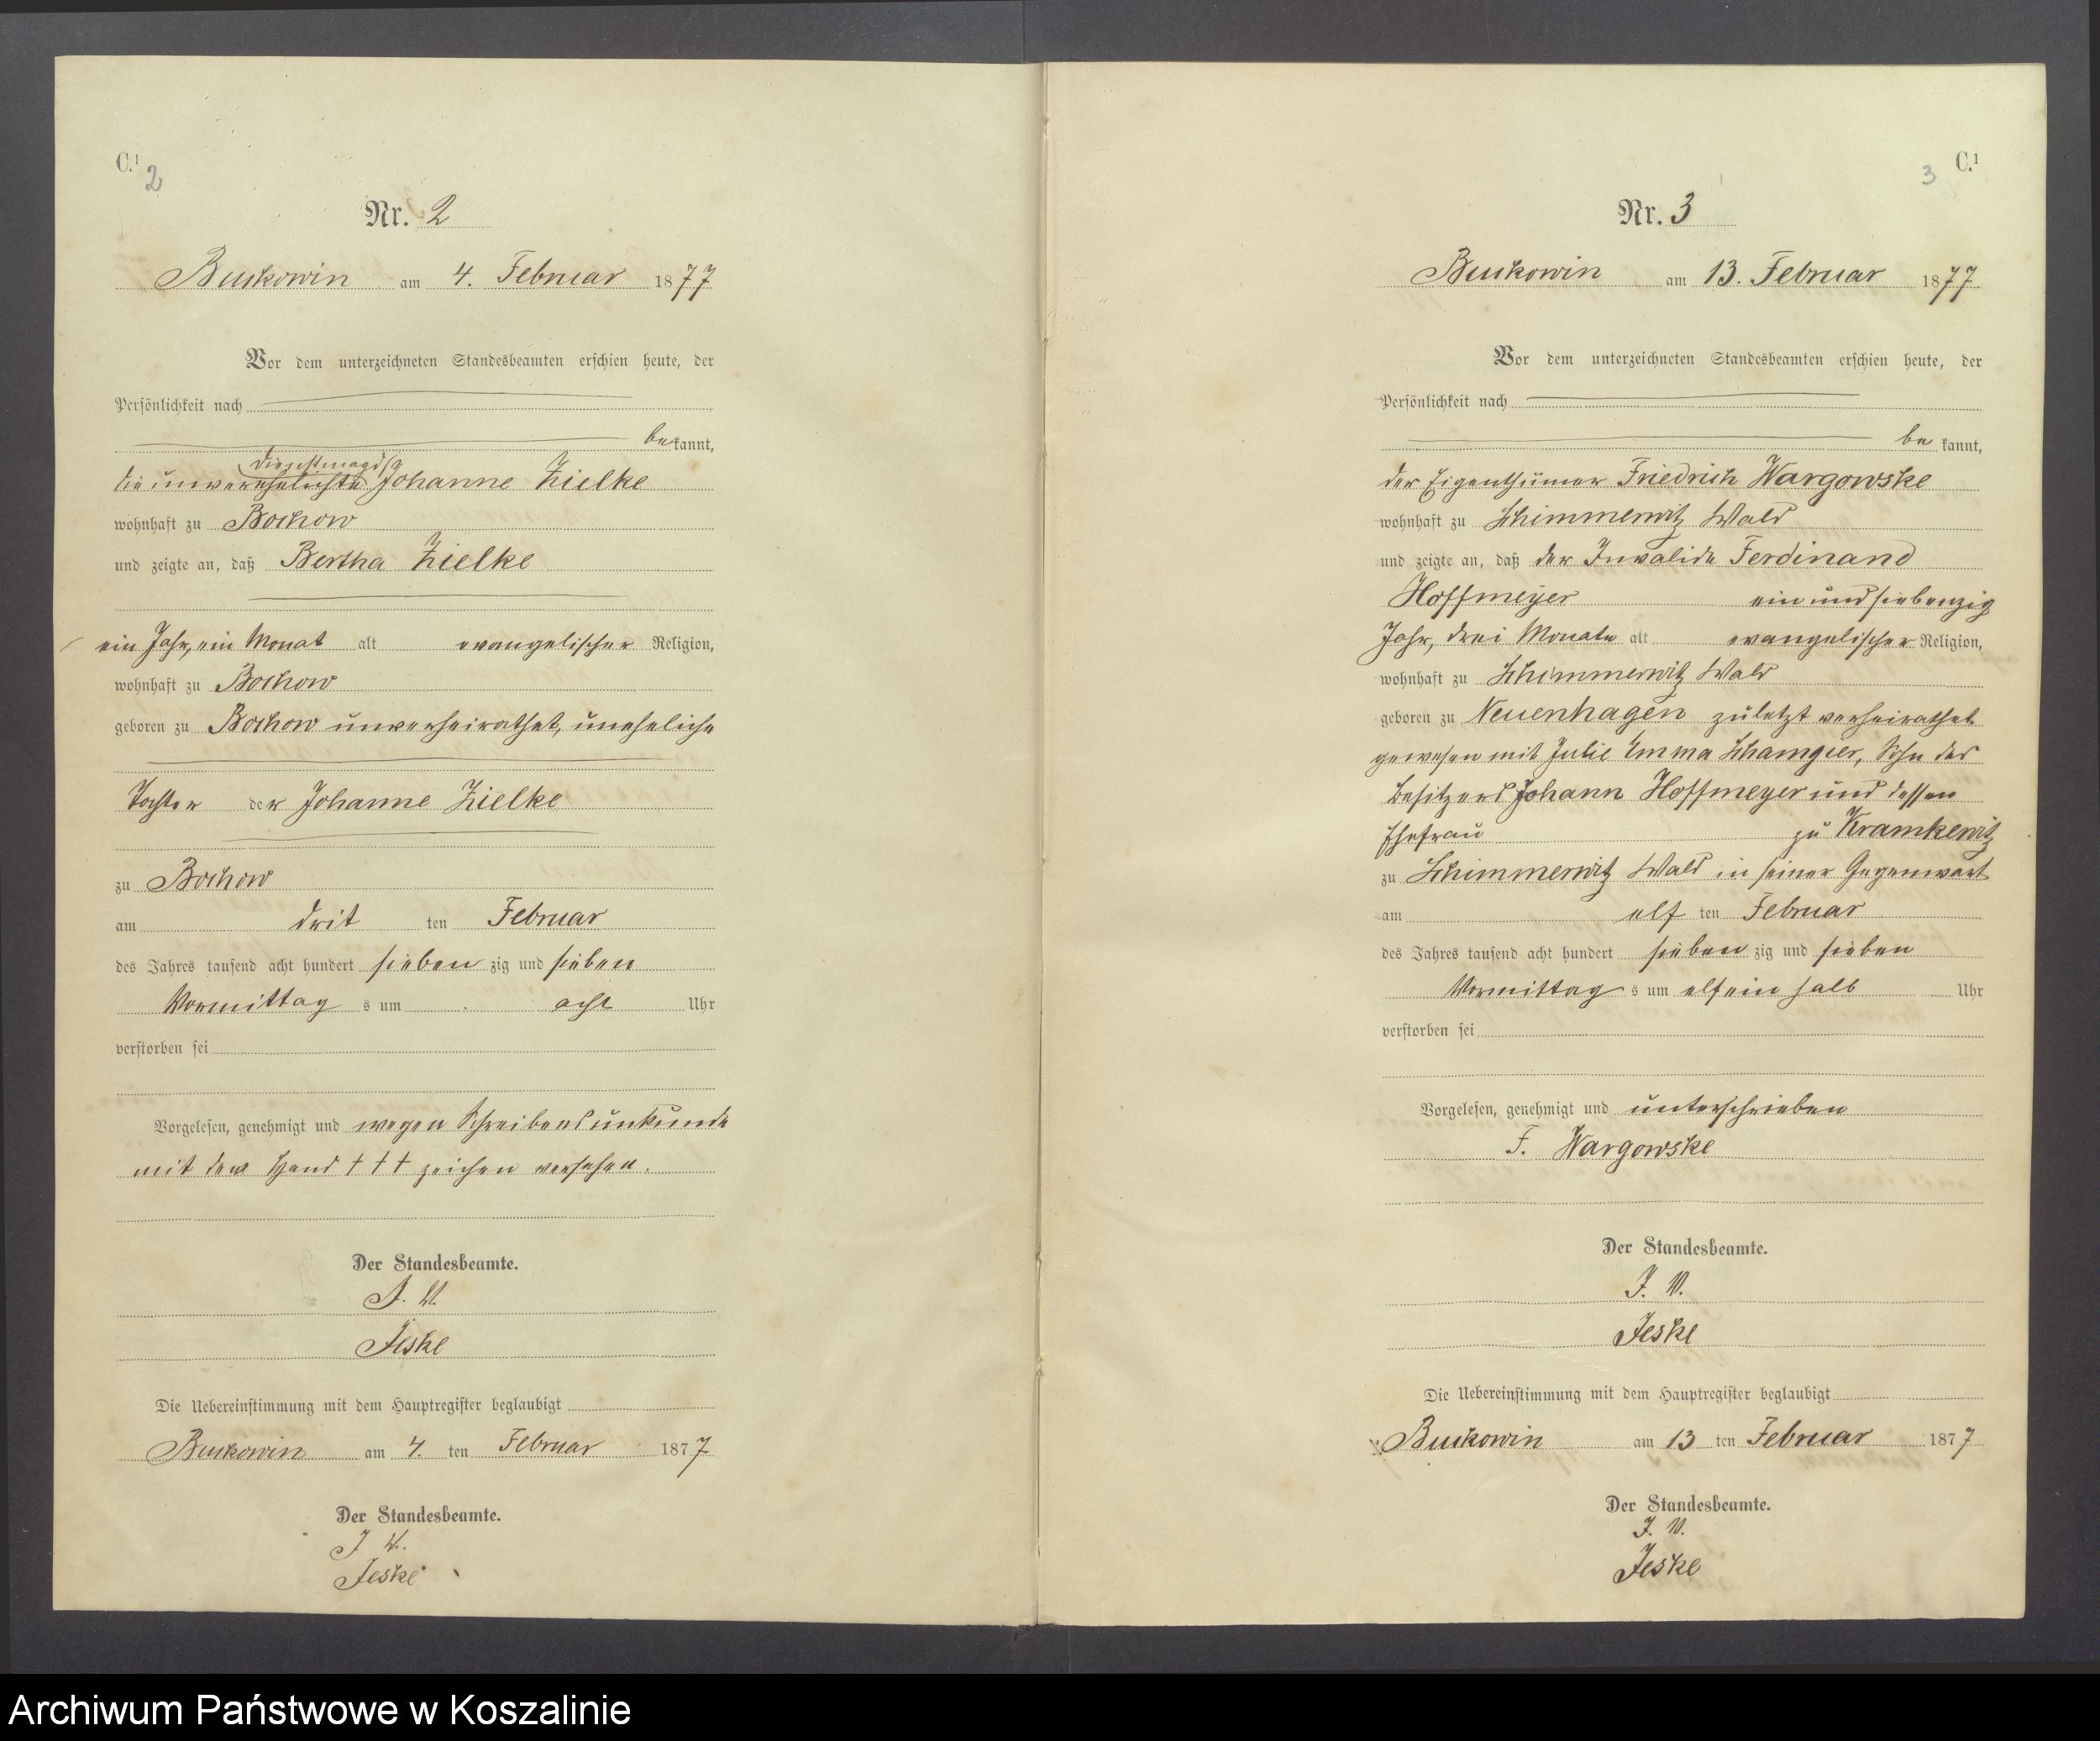 C.¹
2
Nr. 2
Buckowin am 4. Februar 1877
Vor dem unterzeichneten Standesbeamten erschien heute, der
Persönlichkeit nach
bekannt,
Dienstmagd
die unverehelichte Johanne Zielke
wohnhaft zu Bochow
und zeigte an, daß Bertha Zielke
ein Jahr, ein Monat alt evangelischer Religion,
wohnhaft zu Bochow
geboren zu Bochow unverheirathet, uneheliche
Tochter der Johanne Zielke
zu Bochow
am drit ten Februar
des Jahres tausend acht hundert sieben zig und sieben
Vormittag s um acht Uhr
verstorben sei
Vorgelesen, genehmigt und wegen Schreibensunkunde
mit dem Hand +++ zeichen versehen.
Der Standesbeamte.
J. V.
Jeske
Die Uebereinstimmung mit dem Hauptregister beglaubigt
Buckowin am 4. ten Februar 1877
Der Standesbeamte.
J V.
Jeske
3 C.¹
Nr. 3
Buckowin am 13. Februar 1877
Vor dem unterzeichneten Standesbeamten erschien heute, der
Persönlichkeit nach
be kannt,
der Eigenthümer Friedrich Wargowske
wohnhaft zu Schimmerwitz Wald
und zeigte an, daß der Invalide Ferdinand
Hoffmeyer ein und siebenzig
Jahr, drei Monate alt evangelischer Religion,
wohnhaft zu Schimmerwitz Wald
geboren zu Neuenhagen zuletzt verheirathet
gewesen mit Julie Emma Schamgier, Sohn des
Besitzers Johann Hoffmeyer und dessen
Ehefrau zu Kramkewitz
zu Schimmerwitz Wald in seiner Gegenwart
am elf ten Februar
des Jahres tausend acht hundert sieben zig und sieben
Vormittag s um elf ein halb Uhr
verstorben sei
Vorgelesen, genehmigt und unterschrieben
F. Wargowske
Der Standesbeamte.
J. V.
Jeske
Die Uebereinstimmung mit dem Hauptregister beglaubigt
Buckowin am 13 ten Februar 1877
Der Standesbeamte.
J. V.
Jeske
Archiwum Państwowe w Koszalinie